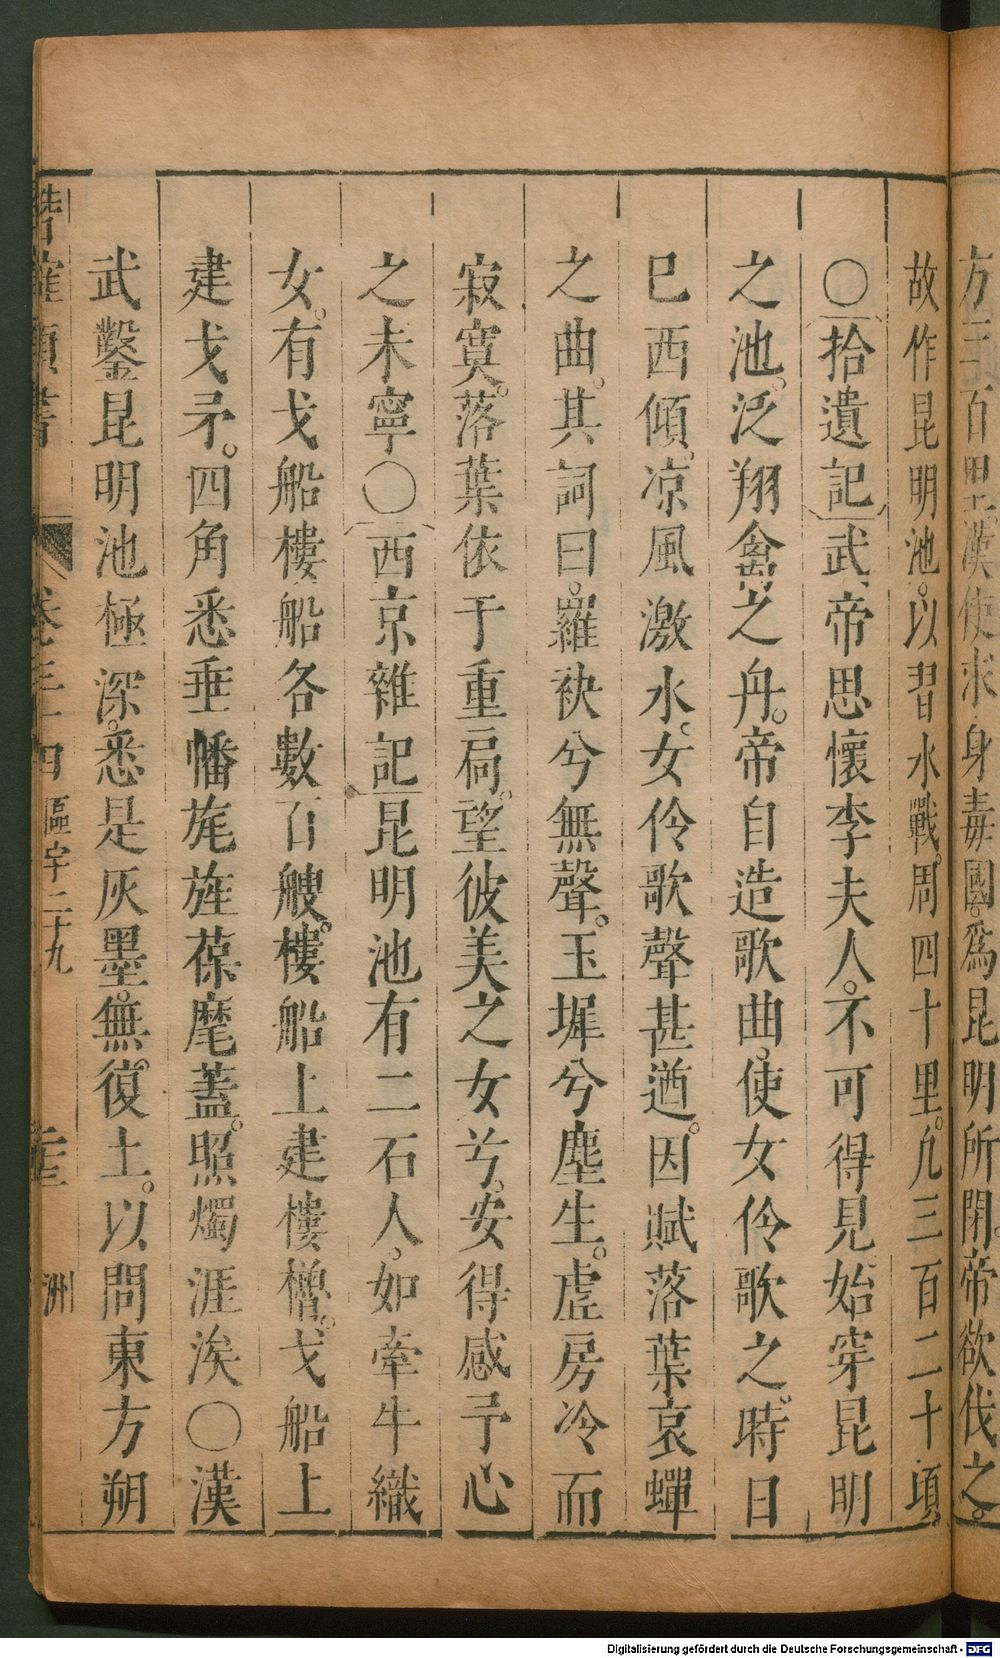 方三百里漢使求身毒國。爲昆明所閉。帝欲伐之。
故作昆明池。以習水戰。周四十里。凡三百二十頃。
○拾遺記武帝思懷李夫人。不可得見。始穿昆明
之池。泛翔禽之舟。帝自造歌曲。使女伶歌之。時日
巳西傾。涼風激水。女伶歌聲甚遒。因賦落葉哀蟬
之曲。其詞曰。羅袂兮無聲。玉墀兮塵生。虛房冷而
寂寞。落葉依于重扃。望彼美之女兮。安得感予心
之未寧○西京雜記昆明池有二石人。如牽牛織
女。有戈船樓船各數百艘。樓船上建樓櫓。戈船上
建戈矛。四角悉垂幡旄旌葆麾蓋。照燭涯涘○漢
武鑿昆明池極深。悉是灰墨。無復土。以問東方朔
類書 卷三十四 區宇二十九 洲
Digitalisierung gefördert durch die Deutsche Forschungsgemeinschaft - DFG